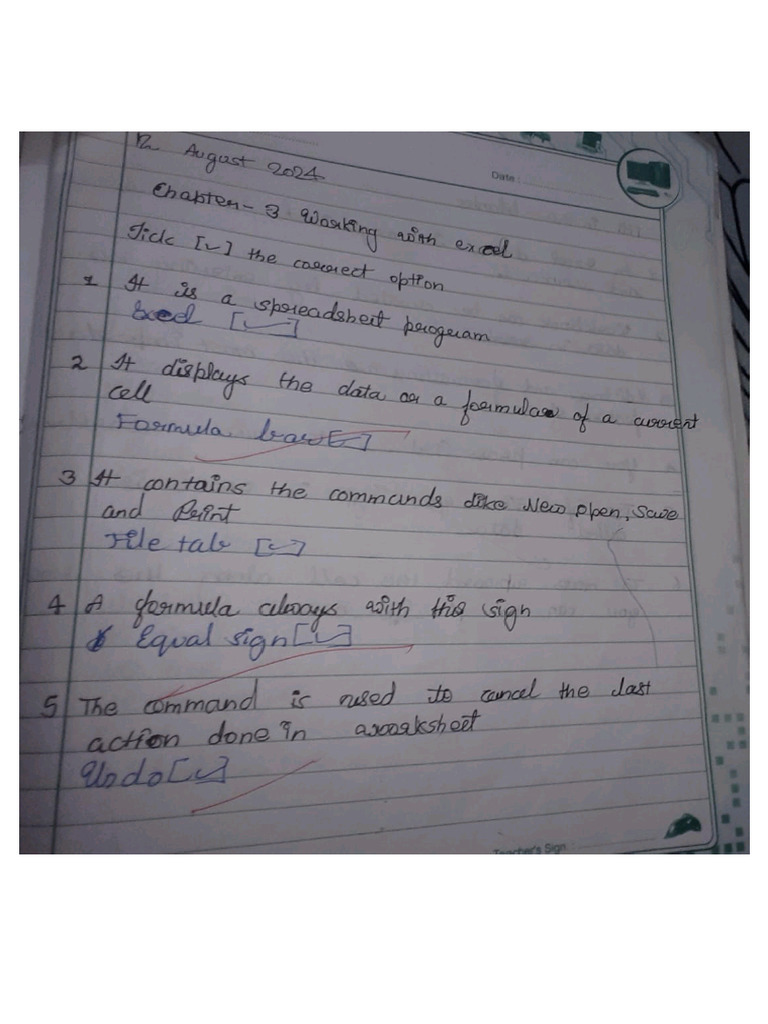 12 August 2024
Date:
Chapter-3 Working with excel
Tick [✓] the correct option
1 It is a spreadsheet program
[✓]
2 It displays the data or a formula of a current
cell
Formula bar [✓]
3 It contains the commands like New open, Save
and Print
File tab [✓]
4 A formula always with this sign
Equal sign [✓]
5 The command is used to cancel the last
action done in worksheet
Undo [✓]
Teacher's Sign